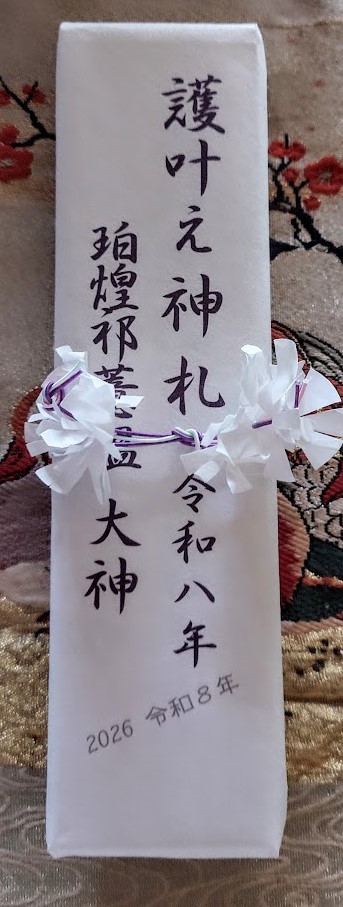 護叶え神札 令和八年
珀煌祁 大神
2026 令和8年